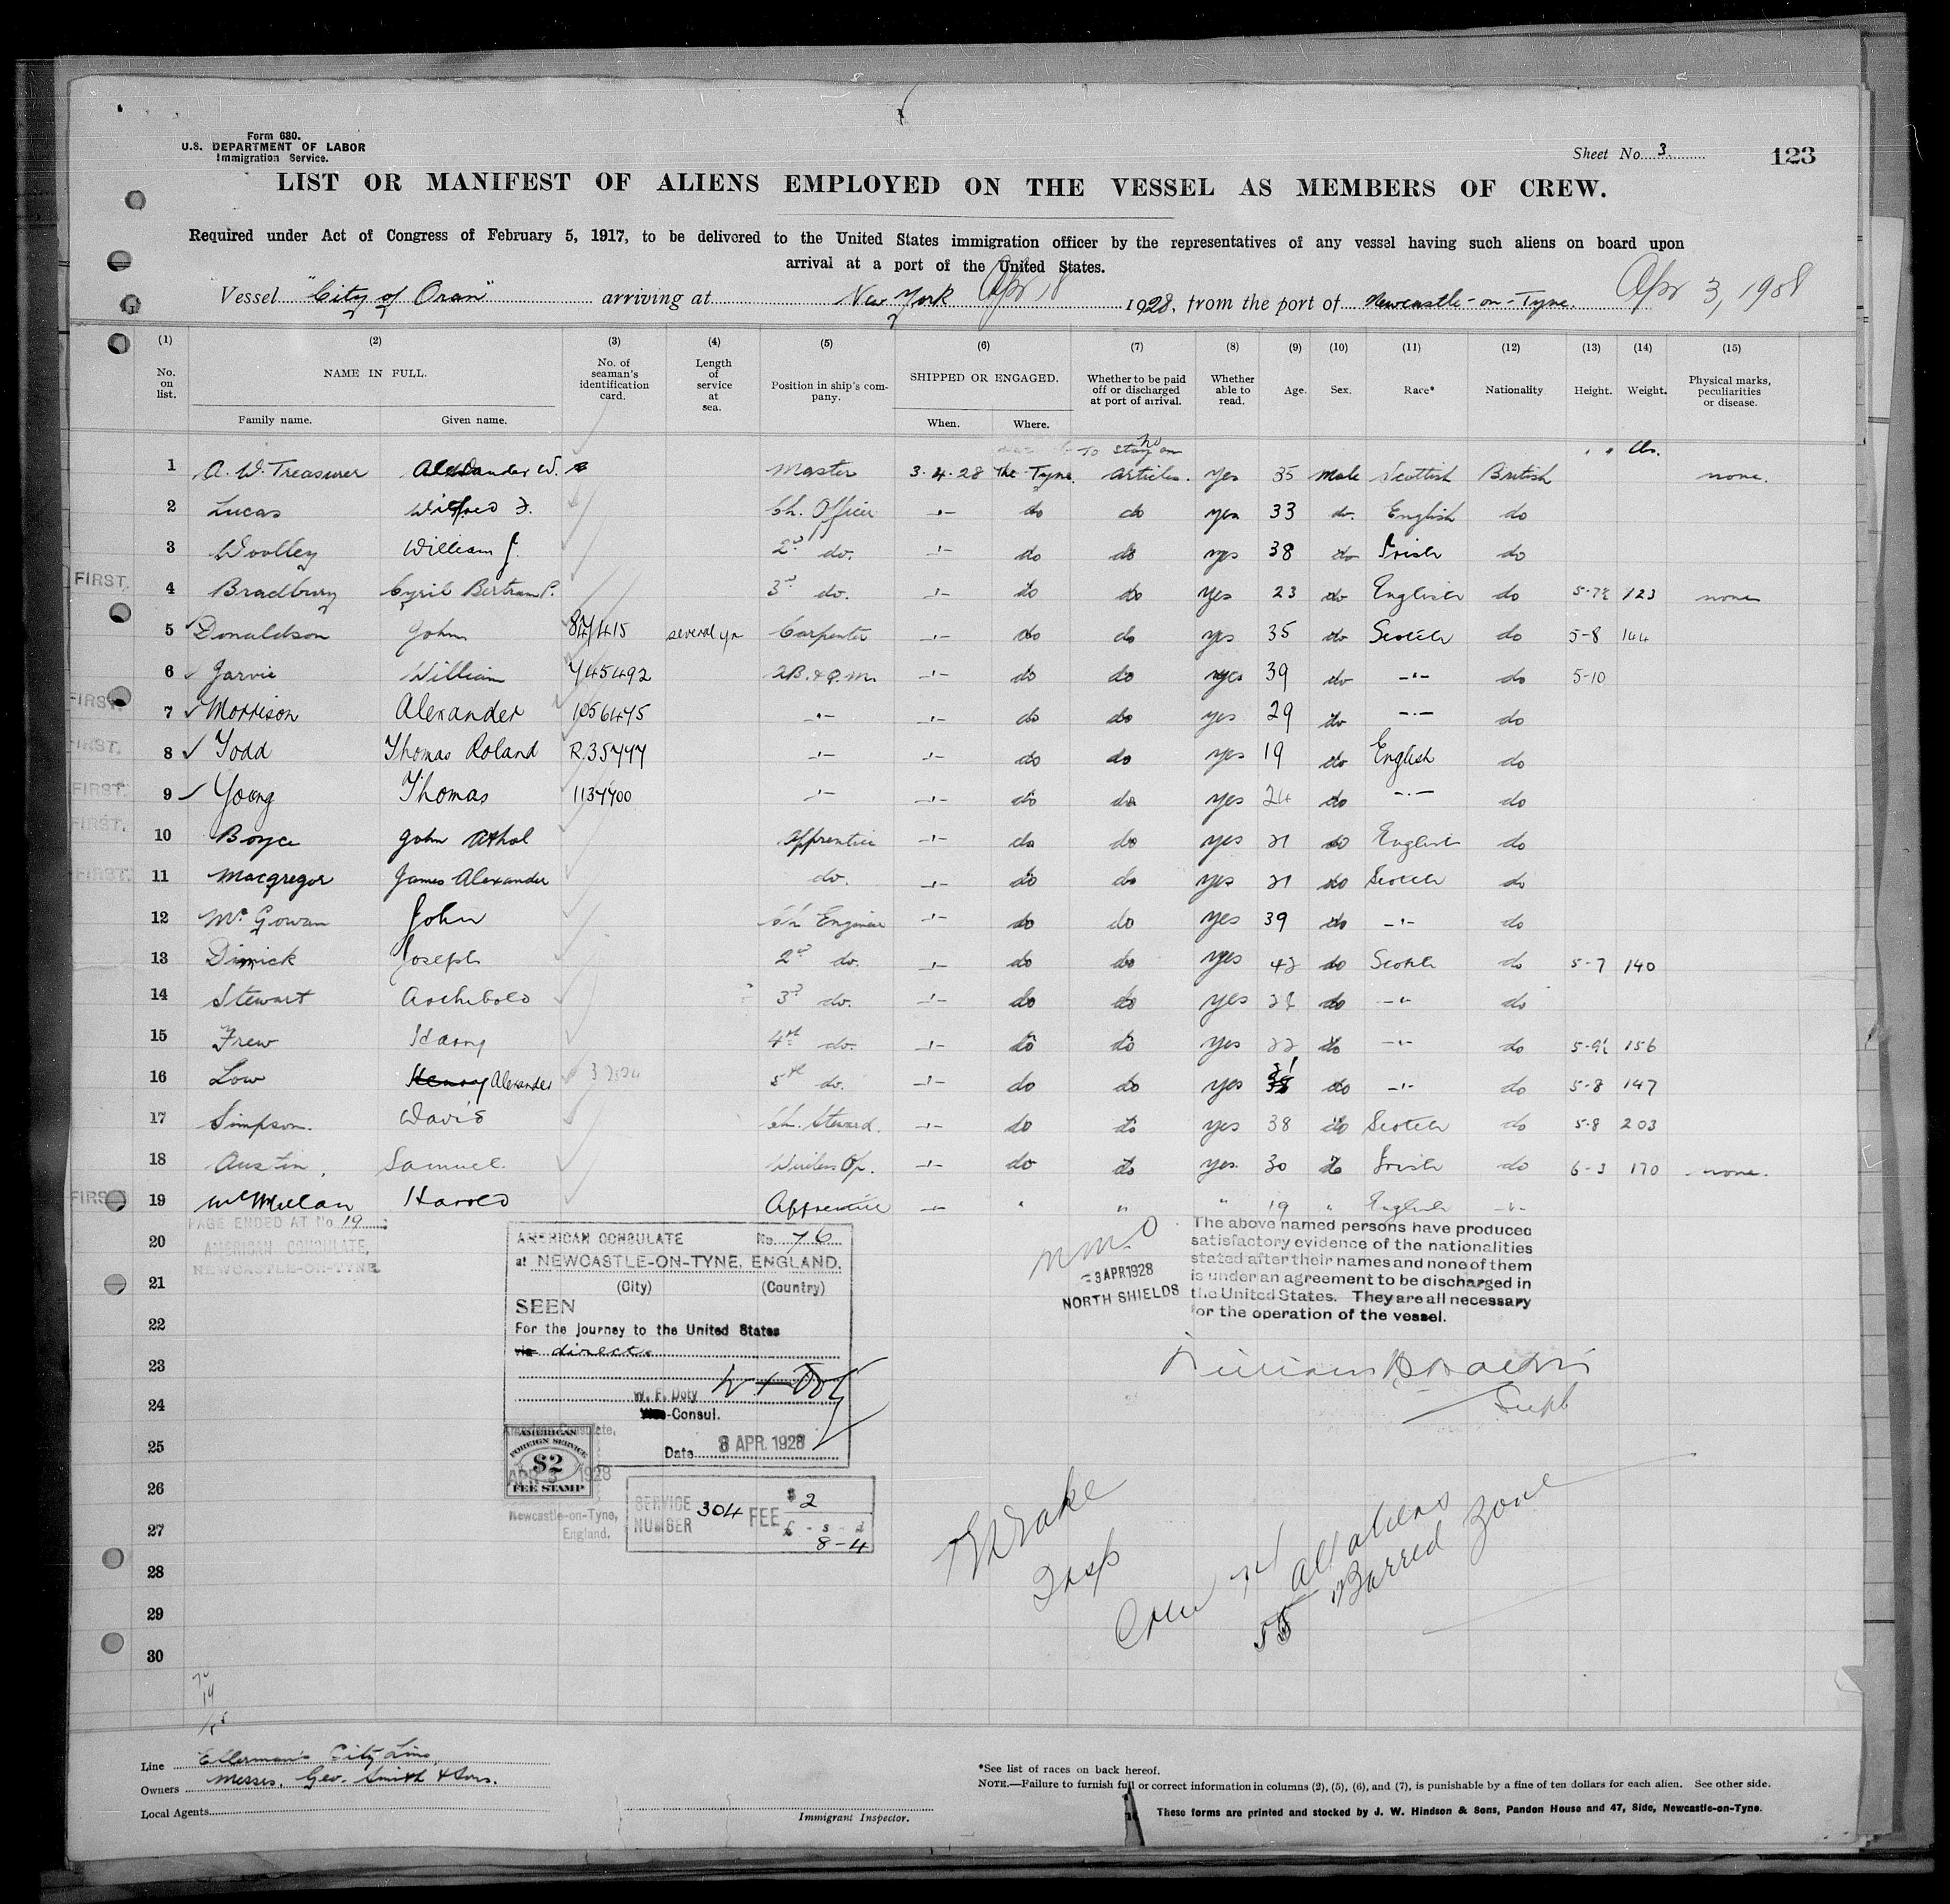 Form 680.
U.S. DEPARTMENT OF LABOR
Immigration Service.
Sheet No. 3
123
LIST OR MANIFEST OF ALIENS EMPLOYED ON THE VESSEL AS MEMBERS OF CREW.
Required under Act of Congress of February 5, 1917, to be delivered to the United States immigration officer by the representatives of any vessel having such aliens on board upon
arrival at a port of the United States.
Vessel "City of Oran" arriving at New York Apr 18 1928, from the port of Newcastle-on-Tyne. Apr 3, 1928
(1) (2) (3) (4) (5) (6) (7) (8) (9) (10) (11) (12) (13) (14) (15)
No. on list. NAME IN FULL. Family name. Given name. No. of seaman's identification card. Length of service at sea. Position in ship's company. SHIPPED OR ENGAGED. When. Where. Whether to be paid off or discharged at port of arrival. Whether able to read. Age. Sex. Race* Nationality Height. Weight. Physical marks, peculiarities or disease.
no
To stay on
lbs.
1 A. W. Treasurer Alexander W. Master 3.4.28 The Tyne. articles. yes 35 Male Scottish British none.
2 Lucas Wilfred F. Ch. Officer -"- do do yes 33 do. English do
3 Woolley William J. 2nd do. -"- do do yes 38 do Irish do
FIRST. 4 Bradbury Cyril Bertram P. 3rd do. -"- do do yes 23 do English do 5-7½ 123 none
5 Donaldson John several yrs Carpenter -"- do do yes 35 do Scotch do 5-8 144
6 Jarvie William 745492 -"- do do yes 39 do -"- do 5-10
FIRST. 7 Morrison Alexander 1056475 -"- -"- do do yes 29 do -"- do
FIRST. 8 Todd Thomas Roland R.35777 -"- -"- do do yes 19 do English do
FIRST. 9 Young Thomas 1137700 -"- -"- do do yes 24 do -"- do
FIRST. 10 Boyce John Athol Apprentice -"- do do yes 21 do English do
FIRST. 11 Macgregor James Alexander do. -"- do do yes 21 do Scotch do
12 McGowan John Ch Engineer -"- do do yes 39 do -"- do
13 Dimick Joseph 2nd do. -"- do do yes 42 do Scotch do 5-7 140
14 Stewart Archibald 3rd do. -"- do do yes do -"- do
15 Frew Harry 4th do. -"- do do yes 22 do -"- do 5-9½ 156
16 Low Henry Alexander 5th do. -"- do do yes 31 do -"- do 5-8 147
17 Simpson. David Ch. Steward. -"- do do yes 38 do Scotch do 5-8 203
18 Austin, Samuel Wireless Op. -"- do do yes. 30 do Irish do 6-3 170 none.
FIRST 19 McMillan Harold Apprentice -"- " " " 19 " English -"-
PAGE ENDED AT No 19
AMERICAN CONSULATE,
NEWCASTLE-ON-TYNE
20
21
22
23
24
25
26
27
28
29
30
AMERICAN CONSULATE No. 76
at NEWCASTLE-ON-TYNE, ENGLAND.
(City) (Country)
SEEN
For the journey to the United States
via direct.
W. F. Doty
Vice-Consul.
Date 3 APR. 1928
AMERICAN
FOREIGN SERVICE
$2
FEE STAMP
American Consulate,
APR 3 1928
Newcastle-on-Tyne,
England.
SERVICE NUMBER 304 FEE $ 2
£ - s - d
8-4
M.M.O
-3 APR 1928
NORTH SHIELDS
The above named persons have produced
satisfactory evidence of the nationalities
stated after their names and none of them
is under an agreement to be discharged in
the United States. They are all necessary
for the operation of the vessel.
Supt
Drake
Insp
Crew 74 all aliens
55 Barred Zone
Line Ellerman's City Line
Owners Messrs. Geo. Smith & Sons.
Local Agents
Immigrant Inspector.
*See list of races on back hereof.
NOTE.—Failure to furnish full or correct information in columns (2), (5), (6), and (7), is punishable by a fine of ten dollars for each alien. See other side.
These forms are printed and stocked by J. W. Hindson & Sons, Pandon House and 47, Side, Newcastle-on-Tyne.